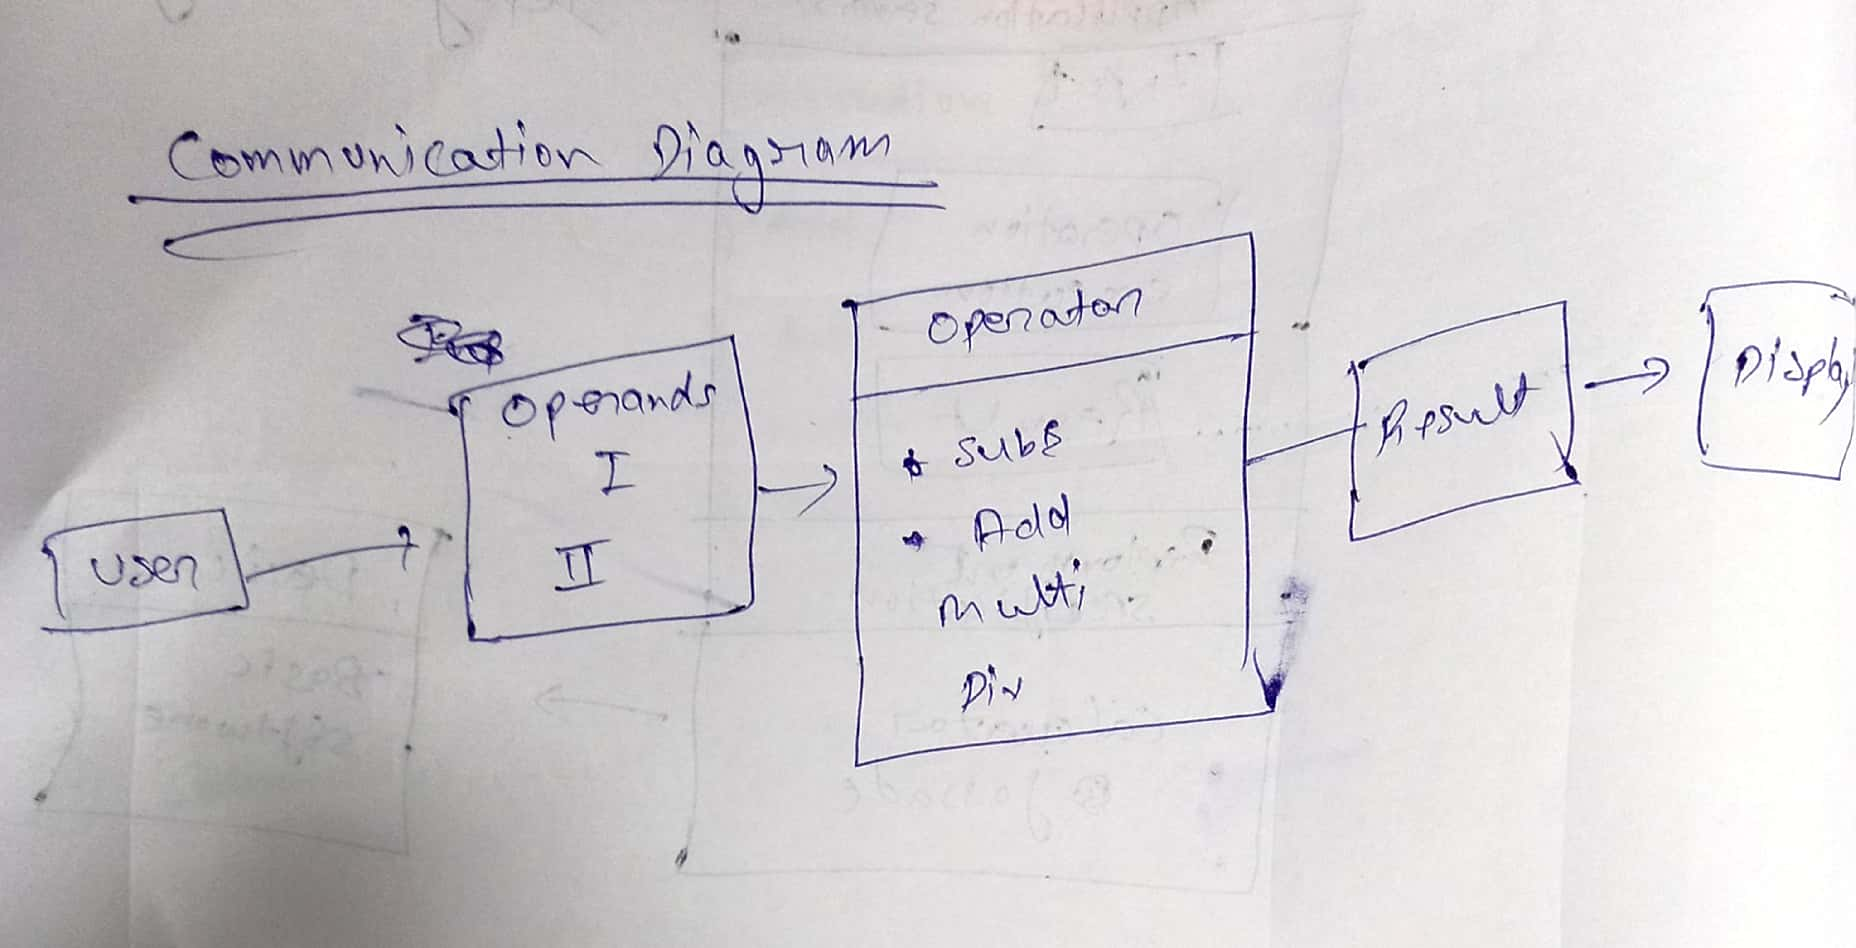 Communication Diagram
User
Operands
I
II
Operator
Subs
Add
Multi
Div
Result
Display